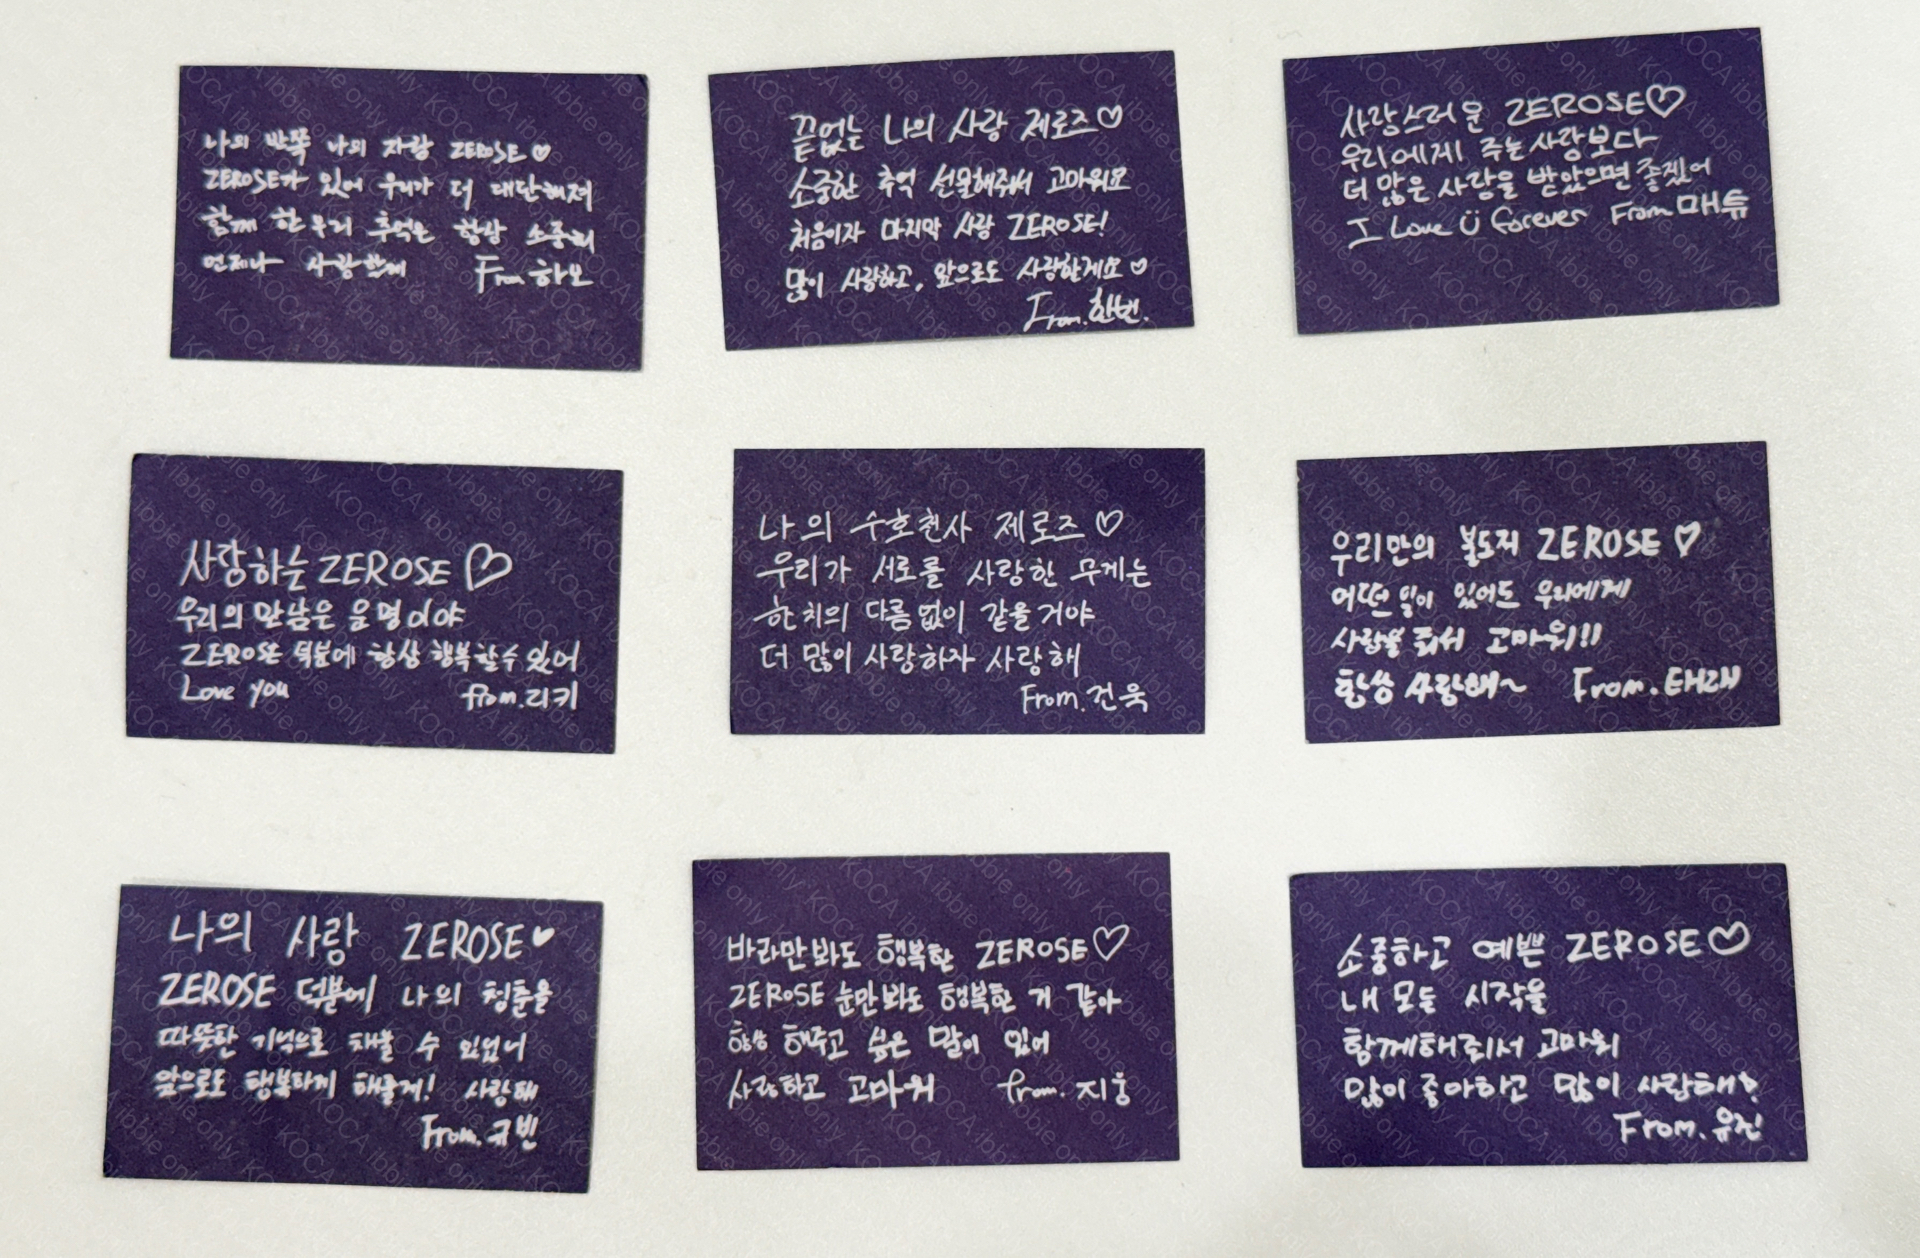 나의 반쪽 나의 자랑 ZEROSE♡
ZEROSE가 있어 우리가 더 대단해져
함께 한 우리 추억은 항상 소중해
언제나 사랑할게 From 하오
끝없는 나의 사랑 제로즈♡
소중한 추억 선물해줘서 고마워요
처음이자 마지막 사랑 ZEROSE!
많이 사랑하고, 앞으로도 사랑할게요♡
From. 한빈.
사랑스러운 ZEROSE♡
우리에게 주는 사랑보다
더 많은 사랑을 받았으면 좋겠어
I Love Ü forever From 매튜
사랑하는 ZEROSE♡
우리의 만남은 운명이야
ZEROSE 덕분에 항상 행복할 수 있어
Love you from. 리키
나의 수호천사 제로즈♡
우리가 서로를 사랑한 무게는
한 치의 다름 없이 같을 거야
더 많이 사랑하자 사랑해
From. 건욱
우리만의 불도저 ZEROSE♡
어떤 일이 있어도 우리에게
사랑을 줘서 고마워!!
항상 사랑해~ From. 태래
나의 사랑 ZEROSE♥
ZEROSE 덕분에 나의 청춘을
따뜻한 기억으로 채울 수 있었어
앞으로도 행복하게 해줄게! 사랑해
From. 규빈
바라만봐도 행복한 ZEROSE♡
ZEROSE 눈만봐도 행복한 거 같아
항상 해주고 싶은 말이 있어
사랑하고 고마워 from. 지웅
소중하고 예쁜 ZEROSE♡
내 모든 시작을
함께해줘서 고마워
많이 좋아하고 많이 사랑해♡
From. 유진
KOCA ibbie only